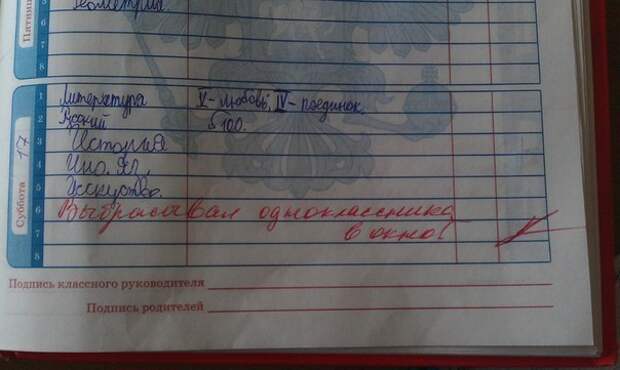 Пятница
5 Геометрия
6
7
8
Суббота 17
1 Литература V-любовь, IV-поединок.
2 Руский §100.
3 История
4 Ино. яз.
5 Исскуство.
6 Выбрасывал одноклассника
7 в окно!
8
Подпись классного руководителя
Подпись родителей